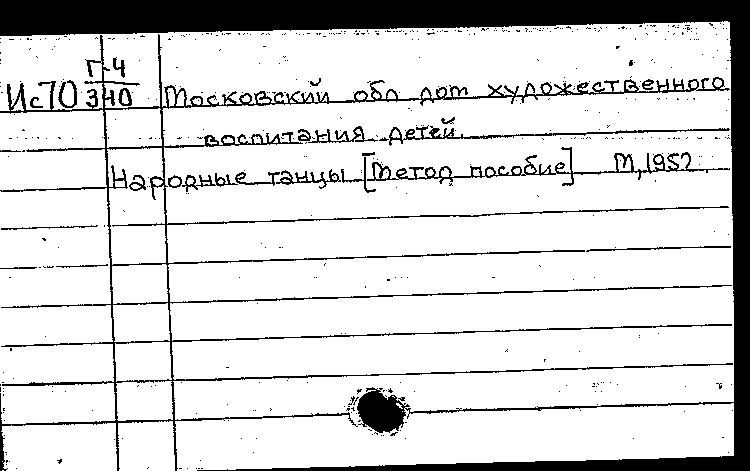 Г-4
Ис70 340 Московский обл дом художественного
воспитания детей
Народные танцы [Метод пособие] М, 1952